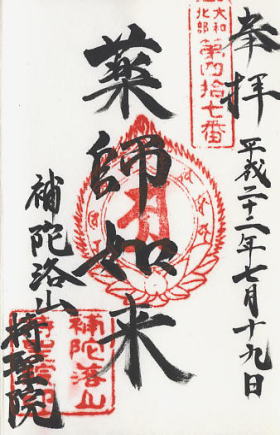 奉拝
平成二十二年七月十九日
大和北部
第四拾七番
薬師如来
補陀洛山
持聖院
補陀落山
持聖院印